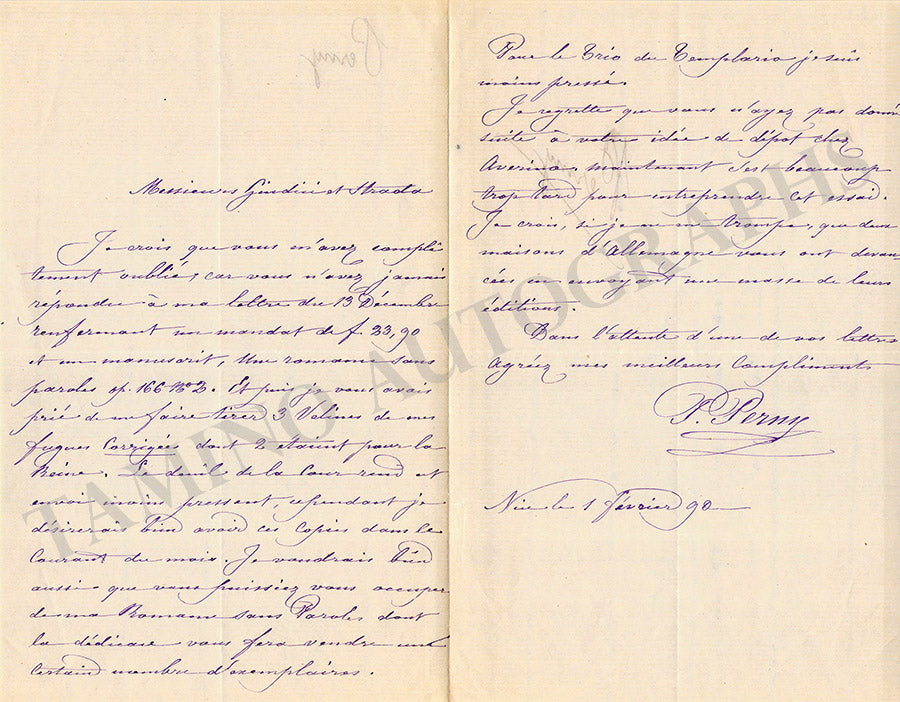 Messieurs Giudici et Strada
Je crois que vous m'avez complè
tement oublié, car vous n'avez jamais
répondu à ma lettre du 13 Décembre
renfermant un mandat de f. 23,90
et un manuscrit, Une romance sans
paroles op. 166 No 2. Et puis je vous avais
prié de me faire tirer 3 Velines de mes
fugues Corrigées dont 2 étaient pour la
Reine. Le deuil de la Cour rend cet
envoi moins pressent, cependant je
désirerais bien avoir ces copies dans le
Courant du mois. Je voudrais bien
aussi que vous puissiez vous occuper
de ma Romance sans Paroles dont
la dédicace vous fera vendre un
certain nombre d'exemplaires.
Pour le Trio du Templario je suis
moins pressé.
Je regrette que vous n'ayez pas donné
suite à votre idée de dépot chez
maintenant c'est beaucoup
trop tard pour entreprendre cet essai.
Je crois, si je ne me trompe, que deux
maisons d'Allemagne vous ont devan
cées en envoyant une masse de leurs
éditions.
Dans l'attente d'une de vos lettres
agréez mes meilleurs compliments
P. Perny
Nice le 1 février 90
Perny
TAMINO AUTOGRAPHS